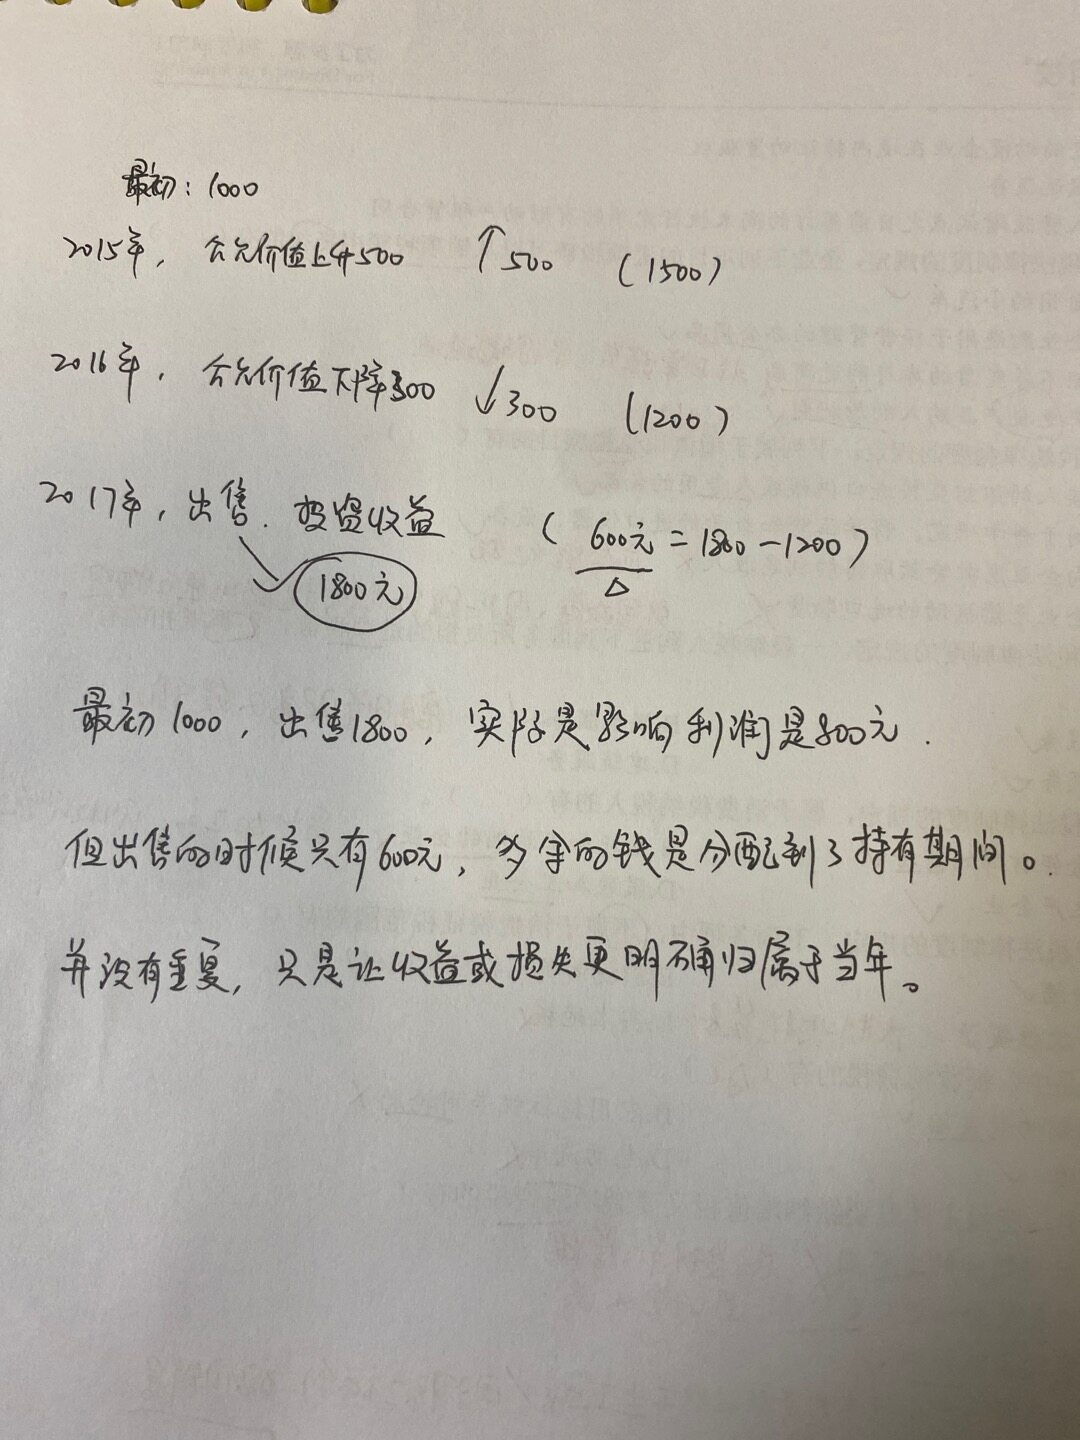 最初：1000
2015年，公允价值上升500 ↑500 (1500)
2016年，公允价值下降300 ↓300 (1200)
2017年，出售．投资收益 (600元=1800-1200)
1800元
最初1000，出售1800，实际是影响利润是800元．
但出售的时候只有600元，多余的钱是分配到了持有期间。
并没有重复，只是让收益或损失更明确归属于当年。